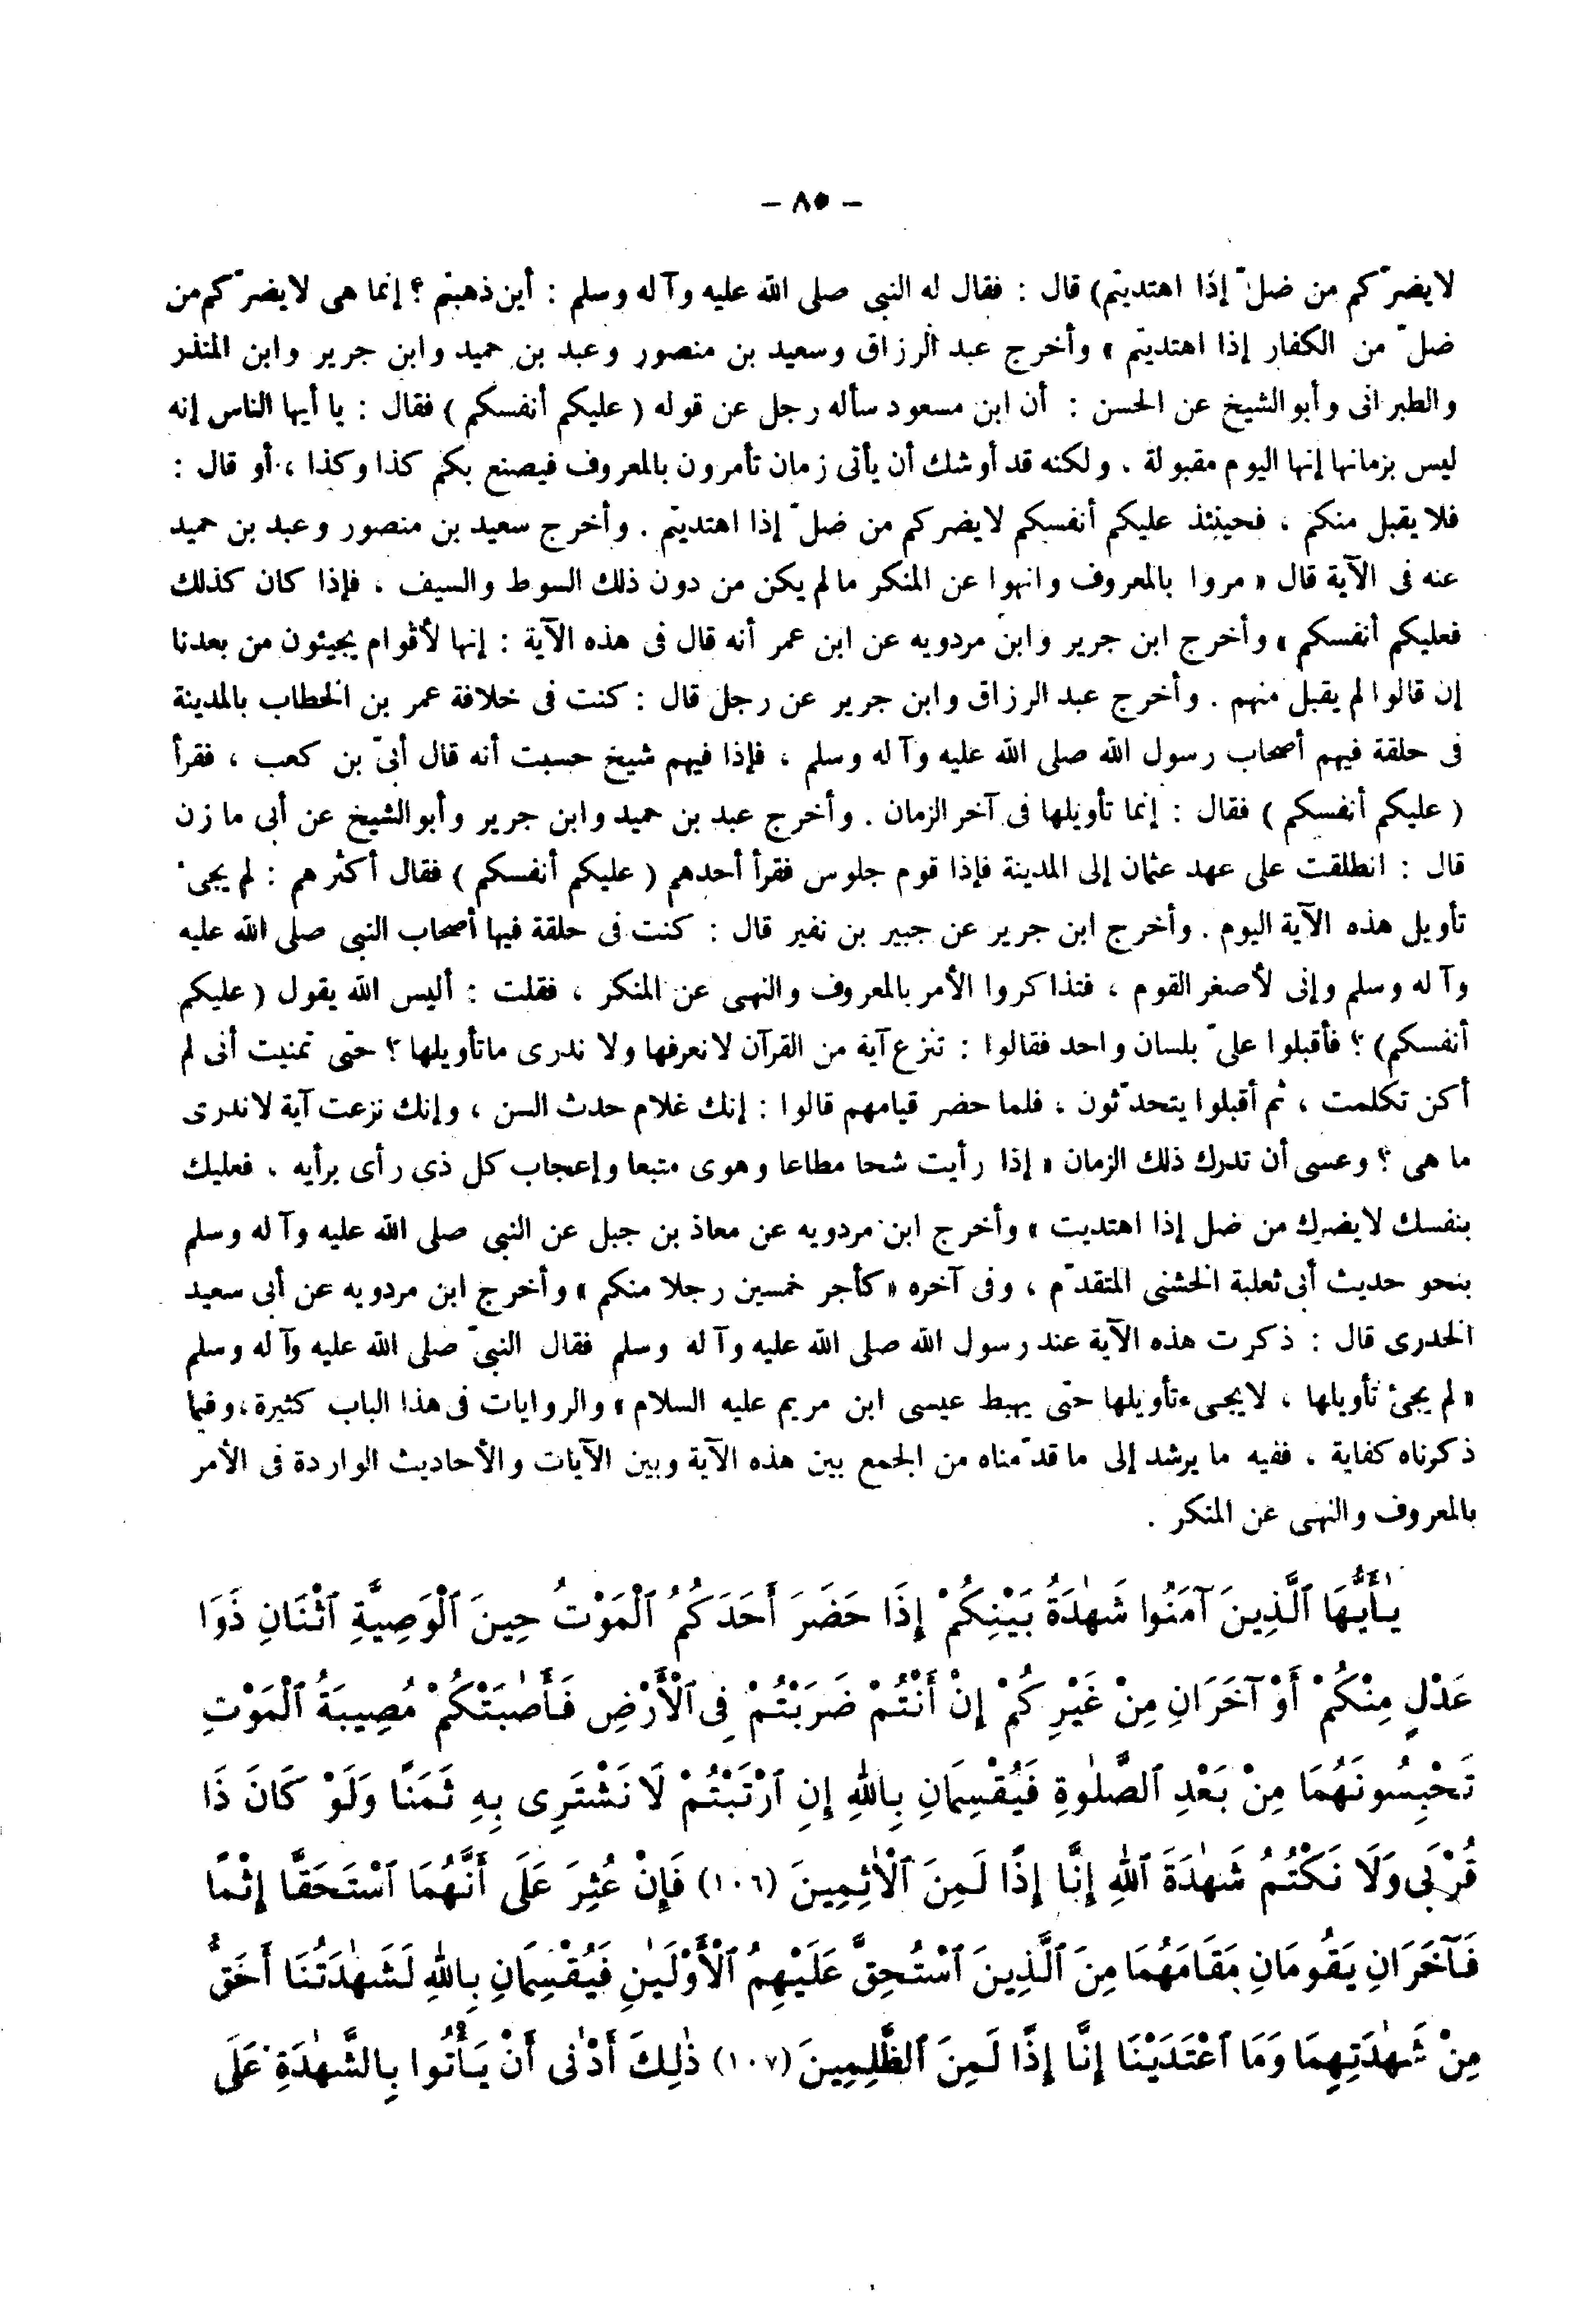 - ٨٥ -
لايضرّكم من ضلّ إذا اهتديتم) قال : فقال له النبى صلى الله عليه وآله وسلم : أين ذهبتم ؟ إنما هى لايضرّكم من
ضلّ من الكفار إذا اهتديتم » وأخرج عبد الرزاق وسعيد بن منصور وعبد بن حميد وابن جرير وابن المنذر
والطبرانى وأبو الشيخ عن الحسن : أن ابن مسعود سأله رجل عن قوله ( عليكم أنفسكم ) فقال : يا أيها الناس إنه
ليس بزمانها إنها اليوم مقبولة ، ولكنه قد أوشك أن يأتى زمان تأمرون بالمعروف فيصنع بكم كذا وكذا ، أو قال :
فلا يقبل منكم ، فحينئذ عليكم أنفسكم لايضركم من ضلّ إذا اهتديتم . وأخرج سعيد بن منصور وعبد بن حميد
عنه فى الآية قال « مروا بالمعروف وانهوا عن المنكر مالم يكن من دون ذلك السوط والسيف ، فإذا كان كذلك
فعليكم أنفسكم » وأخرج ابن جرير وابن مردويه عن ابن عمر أنه قال فى هذه الآية : إنها لأقوام يجيئون من بعدنا
إن قالوا لم يقبل منهم . وأخرج عبد الرزاق وابن جرير عن رجل قال : كنت فى خلافة عمر بن الخطاب بالمدينة
فى حلقة فيهم أصحاب رسول الله صلى الله عليه وآله وسلم ، فإذا فيهم شيخ حسبت أنه قال أبىّ بن كعب ، فقرأ
( عليكم أنفسكم ) فقال : إنما تأويلها فى آخر الزمان . وأخرج عبد بن حميد وابن جرير وأبو الشيخ عن أبى مازن
قال : انطلقت على عهد عثمان إلى المدينة فإذا قوم جلوس فقرأ أحدهم ( عليكم أنفسكم ) فقال أكثرهم : لم يجىء
تأويل هذه الآية اليوم . وأخرج ابن جرير عن جبير بن نفير قال : كنت فى حلقة فيها أصحاب النبى صلى الله عليه
وآله وسلم وإنى لأصغر القوم ، فتذاكروا الأمر بالمعروف والنهى عن المنكر ، فقلت : أليس الله يقول ( عليكم
أنفسكم) ؟ فأقبلوا علىّ بلسان واحد فقالوا : تنزع آية من القرآن لانعرفها ولا ندرى ماتأويلها ؟ حتى تمنيت أنى لم
أكن تكلمت ، ثم أقبلوا يتحدّثون ، فلما حضر قيامهم قالوا : إنك غلام حدث السن ، وإنك نزعت آية لاندرى
ما هى ؟ وعسى أن تدرك ذلك الزمان « إذا رأيت شحا مطاعا وهوى متبعا وإعجاب كل ذى رأى برأيه ، فعليك
بنفسك لايضرك من ضل إذا اهتديت » وأخرج ابن مردويه عن معاذ بن جبل عن النبى صلى الله عليه وآله وسلم
بنحو حديث أبى ثعلبة الخشنى المتقدّم ، وفى آخره « كأجر خمسين رجلا منكم » وأخرج ابن مردويه عن أبى سعيد
الخدرى قال : ذكرت هذه الآية عند رسول الله صلى الله عليه وآله وسلم فقال النبىّ صلى الله عليه وآله وسلم
« لم يجئ تأويلها ، لايجىء تأويلها حتى يهبط عيسى ابن مريم عليه السلام » والروايات فى هذا الباب كثيرة ، وفيما
ذكرناه كفاية ، ففيه ما يرشد إلى ماقدّمناه من الجمع بين هذه الآية وبين الآيات والأحاديث الواردة فى الأمر
بالمعروف والنهى عن المنكر .
يَٰأَيُّهَا ٱلَّذِينَ آمَنُوا شَهَٰدَةُ بَيْنِكُمْ إِذَا حَضَرَ أَحَدَكُمُ ٱلْمَوْتُ حِينَ ٱلْوَصِيَّةِ ٱثْنَانِ ذَوَا
عَدْلٍ مِنْكُمْ أَوْ آخَرَانِ مِنْ غَيْرِكُمْ إِنْ أَنْتُمْ ضَرَبْتُمْ فِى ٱلْأَرْضِ فَأَصَٰبَتْكُمْ مُصِيبَةُ ٱلْمَوْتِ
تَحْبِسُونَهُمَا مِنْ بَعْدِ ٱلصَّلَوٰةِ فَيُقْسِمَانِ بِٱللهِ إِنِ ٱرْتَبْتُمْ لَا نَشْتَرِى بِهِ ثَمَنًا وَلَوْ كَانَ ذَا
قُرْبَى وَلَا نَكْتُمُ شَهَٰدَةَ ٱللهِ إِنَّا إِذًا لَمِنَ ٱلْآثِمِينَ (١٠٦) فَإِنْ عُثِرَ عَلَى أَنَّهُمَا ٱسْتَحَقَّا إِثْمًا
فَآخَرَانِ يَقُومَانِ مَقَامَهُمَا مِنَ ٱلَّذِينَ ٱسْتُحِقَّ عَلَيْهِمُ ٱلْأَوْلَيَٰنِ فَيُقْسِمَانِ بِٱللهِ لَشَهَٰدَتُنَا أَحَقُّ
مِنْ شَهَٰدَتِهِمَا وَمَا ٱعْتَدَيْنَا إِنَّا إِذًا لَمِنَ ٱلظَّٰلِمِينَ (١٠٧) ذَٰلِكَ أَدْنَى أَنْ يَأْتُوا بِالشَّهَٰدَةِ عَلَى